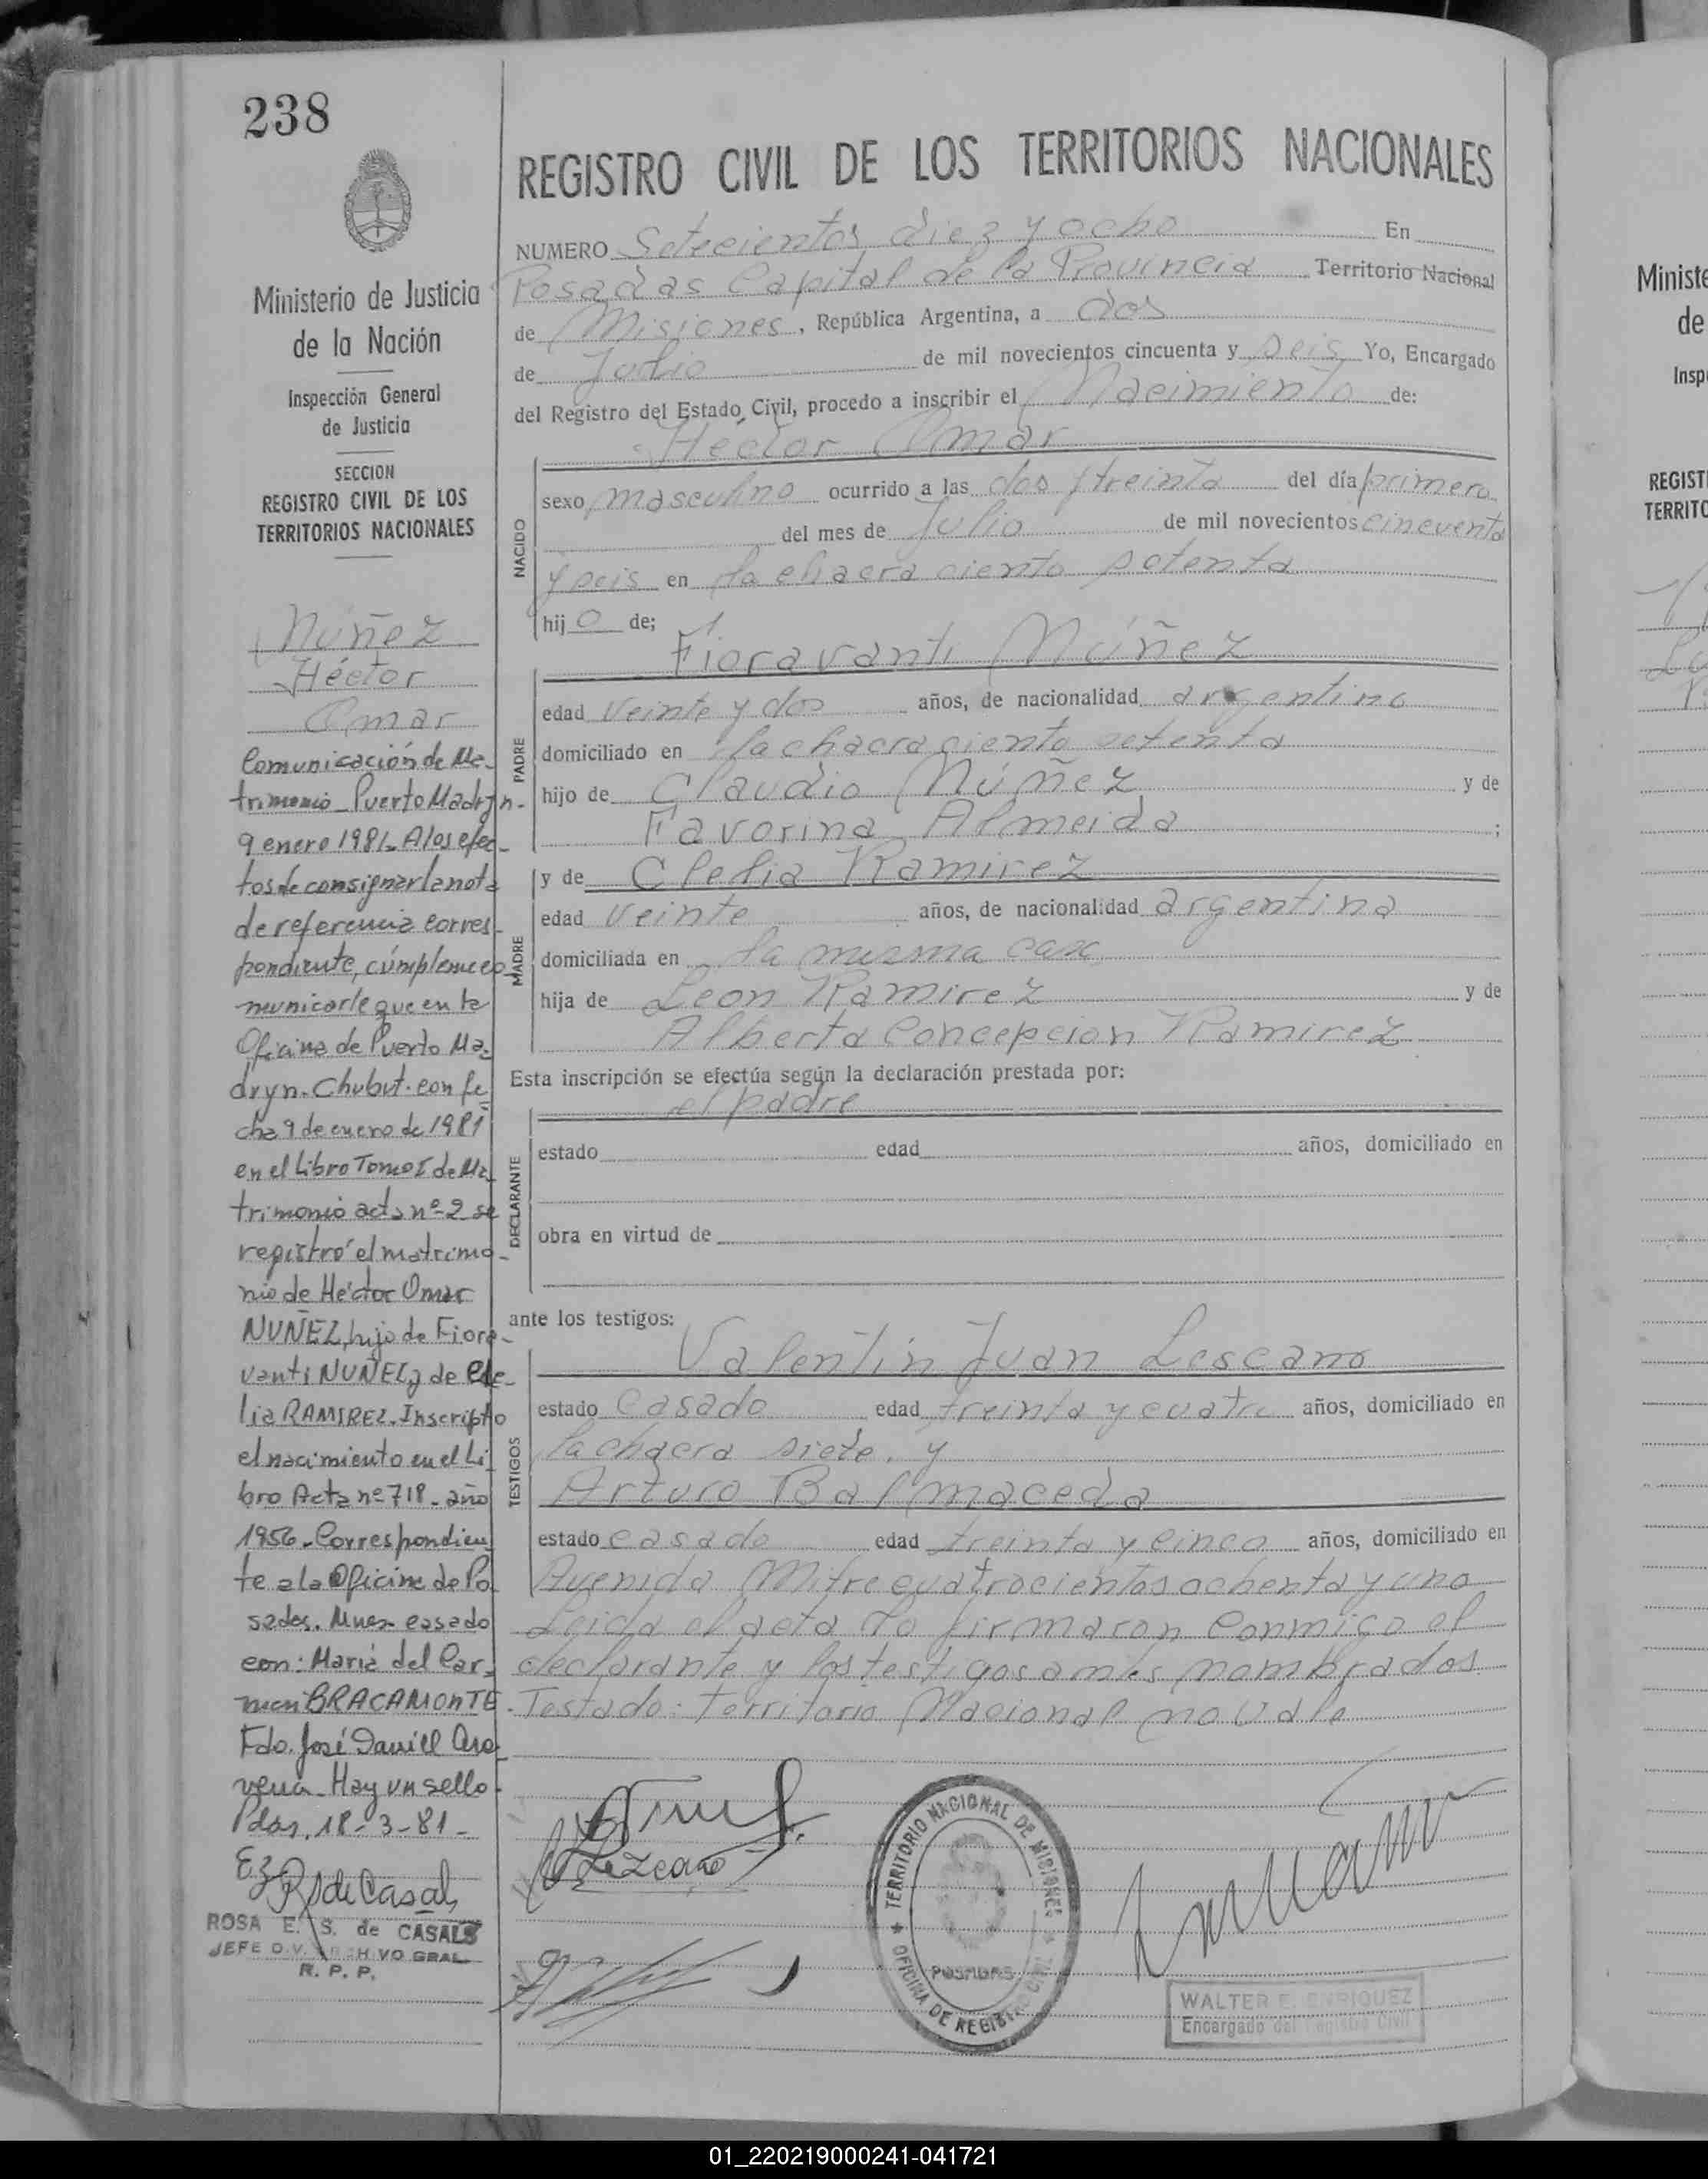 238
Ministerio de Justicia
de la Nación
Inspección General
de Justicia
SECCION
REGISTRO CIVIL DE LOS
TERRITORIOS NACIONALES
Núñez
Héctor
Omar
Comunicación de Ma-
trimonio - Puerto Madryn -
9 enero 1981 - A los efec-
tos de consignar la nota
de referencia corres-
pondiente, cúmpleme co
municarle que en la
Oficina de Puerto Ma-
dryn - Chubut - con fe
cha 9 de enero de 1981
en el Libro Tomo I de Ma
trimonio acta nº 2 se
registró el matrimo-
nio de Héctor Omar
NUÑEZ, hijo de Fiora-
vanti NUÑEZ y de Cle-
lia RAMIREZ. Inscripto
el nacimiento en el Li
bro Acta nº 718 - año
1956 - Correspondien
te a la Oficina de Po
sadas.
casado
con: María del Car-
men BRACAMONTE
Fdo. José Daniel
Hay un sello -
Pdas, 18-3-81 -
R S de Casals
ROSA E. S. de CASALS
JEFE DIV. ARCHIVO GRAL.
R. P. P.
REGISTRO CIVIL DE LOS TERRITORIOS NACIONALES
NUMERO Setecientos diez y ocho En
Posadas Capital de la Provincia Territorio Nacional
de Misiones, República Argentina, a dos
de Julio de mil novecientos cincuenta y seis Yo, Encargado
del Registro del Estado Civil, procedo a inscribir el Nacimiento de:
Héctor Omar
NACIDO
sexo masculino ocurrido a las dos y treinta del día primero
del mes de Julio de mil novecientos cincuenta
y seis en la chacra ciento setenta
hijo de;
Fioravanti Núñez
PADRE
edad veinte y dos años, de nacionalidad argentino
domiciliado en la chacra ciento setenta
hijo de Claudio Núñez y de
Favorina Almeida ;
MADRE
y de Clelia Ramirez
edad veinte años, de nacionalidad argentina
domiciliada en la misma casa
hija de Leon Ramirez y de
Alberta Concepcion Ramirez
Esta inscripción se efectúa según la declaración prestada por:
el padre
DECLARANTE
estado edad años, domiciliado en
obra en virtud de
ante los testigos:
Valentin Juan Lescano
TESTIGOS
estado casado edad treinta y cuatro años, domiciliado en
la chacra siete, y
Arturo Balmaceda
estado casado edad treinta y cinco años, domiciliado en
Avenida Mitre cuatrocientos ochenta y uno
Leida el acta la firmaron conmigo el
declarante y los testigos antes nombrados
Testado: Territorio Nacional no vale
Lezcano
TERRITORIO NACIONAL DE MISIONES
POSADAS
OFICINA DE REGISTRO CIVIL
WALTER E. ENRIQUEZ
Encargado del Registro Civil
Ministe
de
Insp
REGIST
TERRITO
01_220219000241-041721